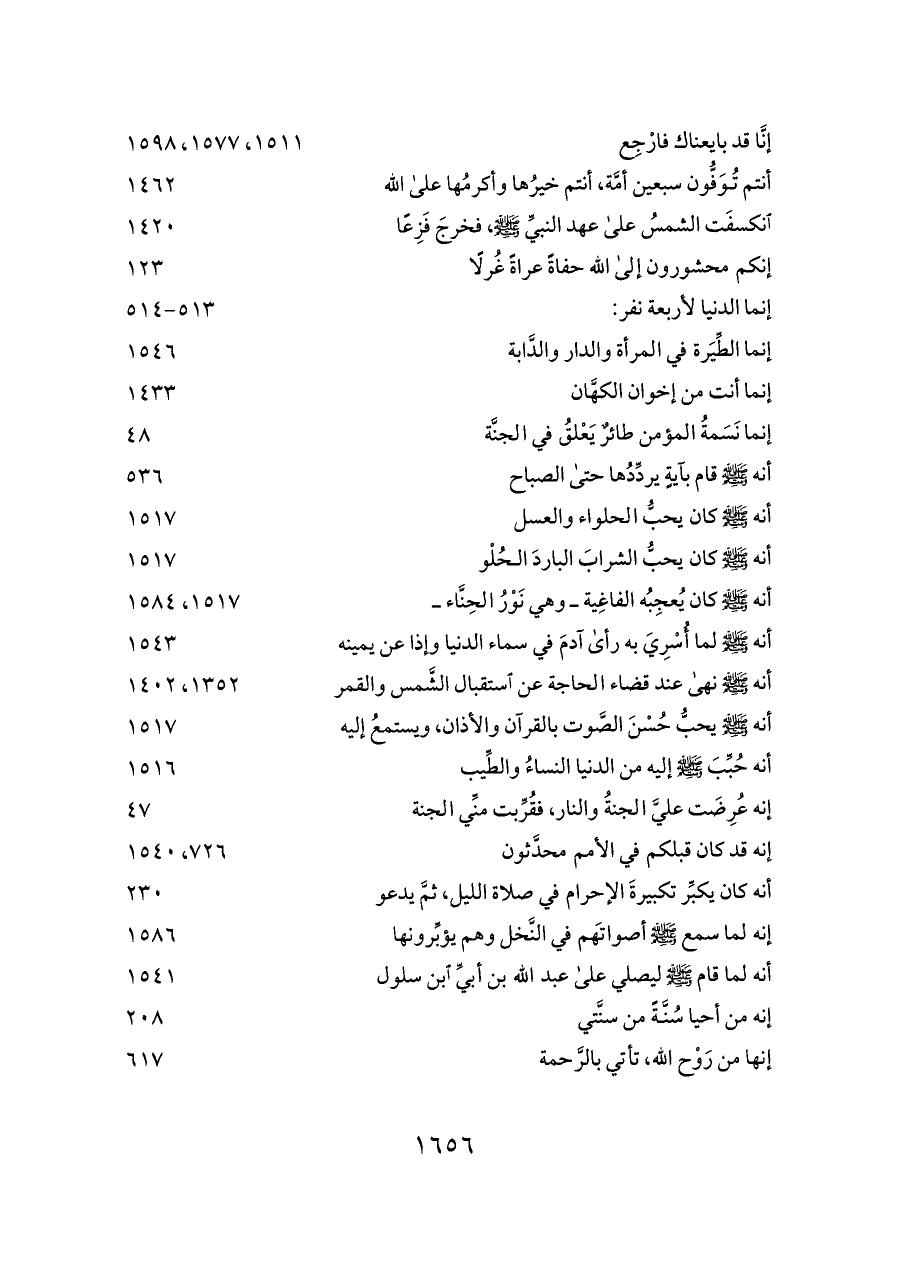 إنَّا قد بايعناك فارْجِع ١٥١١، ١٥٧٧، ١٥٩٨
أنتم تُوَفُّون سبعين أمَّة، أنتم خيرُها وأكرمُها علىٰ الله ١٤٦٢
ٱنكسفَت الشمسُ علىٰ عهد النبيِّ ﷺ، فخرجَ فَزِعًا ١٤٢٠
إنكم محشورون إلىٰ الله حفاةً عراةً غُرلًا ١٢٣
إنما الدنيا لأربعة نفر: ٥١٣-٥١٤
إنما الطِّيَرة في المرأة والدار والدَّابة ١٥٤٦
إنما أنت من إخوان الكهَّان ١٤٣٣
إنما نَسَمةُ المؤمن طائرٌ يَعْلقُ في الجنَّة ٤٨
أنه ﷺ قام بآيةٍ يردِّدُها حتىٰ الصباح ٥٣٦
أنه ﷺ كان يحبُّ الحلواء والعسل ١٥١٧
أنه ﷺ كان يحبُّ الشرابَ الباردَ الـحُلْو ١٥١٧
أنه ﷺ كان يُعجِبُه الفاغِية ـ وهي نَوْرُ الحِنَّاء ـ ١٥١٧، ١٥٨٤
أنه ﷺ لما أُسْرِيَ به رأىٰ آدمَ في سماء الدنيا وإذا عن يمينه ١٥٤٣
أنه ﷺ نهىٰ عند قضاء الحاجة عن ٱستقبال الشَّمس والقمر ١٣٥٢، ١٤٠٢
أنه ﷺ يحبُّ حُسْنَ الصَّوت بالقرآن والأذان، ويستمعُ إليه ١٥١٧
أنه حُبِّبَ ﷺ إليه من الدنيا النساءُ والطِّيب ١٥١٦
إنه عُرِضَت عليَّ الجنةُ والنار، فقُرِّبت منِّي الجنة ٤٧
إنه قد كان قبلكم في الأمم محدَّثون ٧٢٦، ١٥٤٠
أنه كان يكبِّر تكبيرةَ الإحرام في صلاة الليل، ثمَّ يدعو ٢٣٠
إنه لما سمع ﷺ أصواتَهم في النَّخل وهم يؤبِّرونها ١٥٨٦
أنه لما قام ﷺ ليصلي علىٰ عبد الله بن أبيِّ ٱبن سلول ١٥٤١
إنه من أحيا سُنَّـةً من سنَّتي ٢٠٨
إنها من رَوْح الله، تأتي بالرَّحمة ٦١٧
١٦٥٦